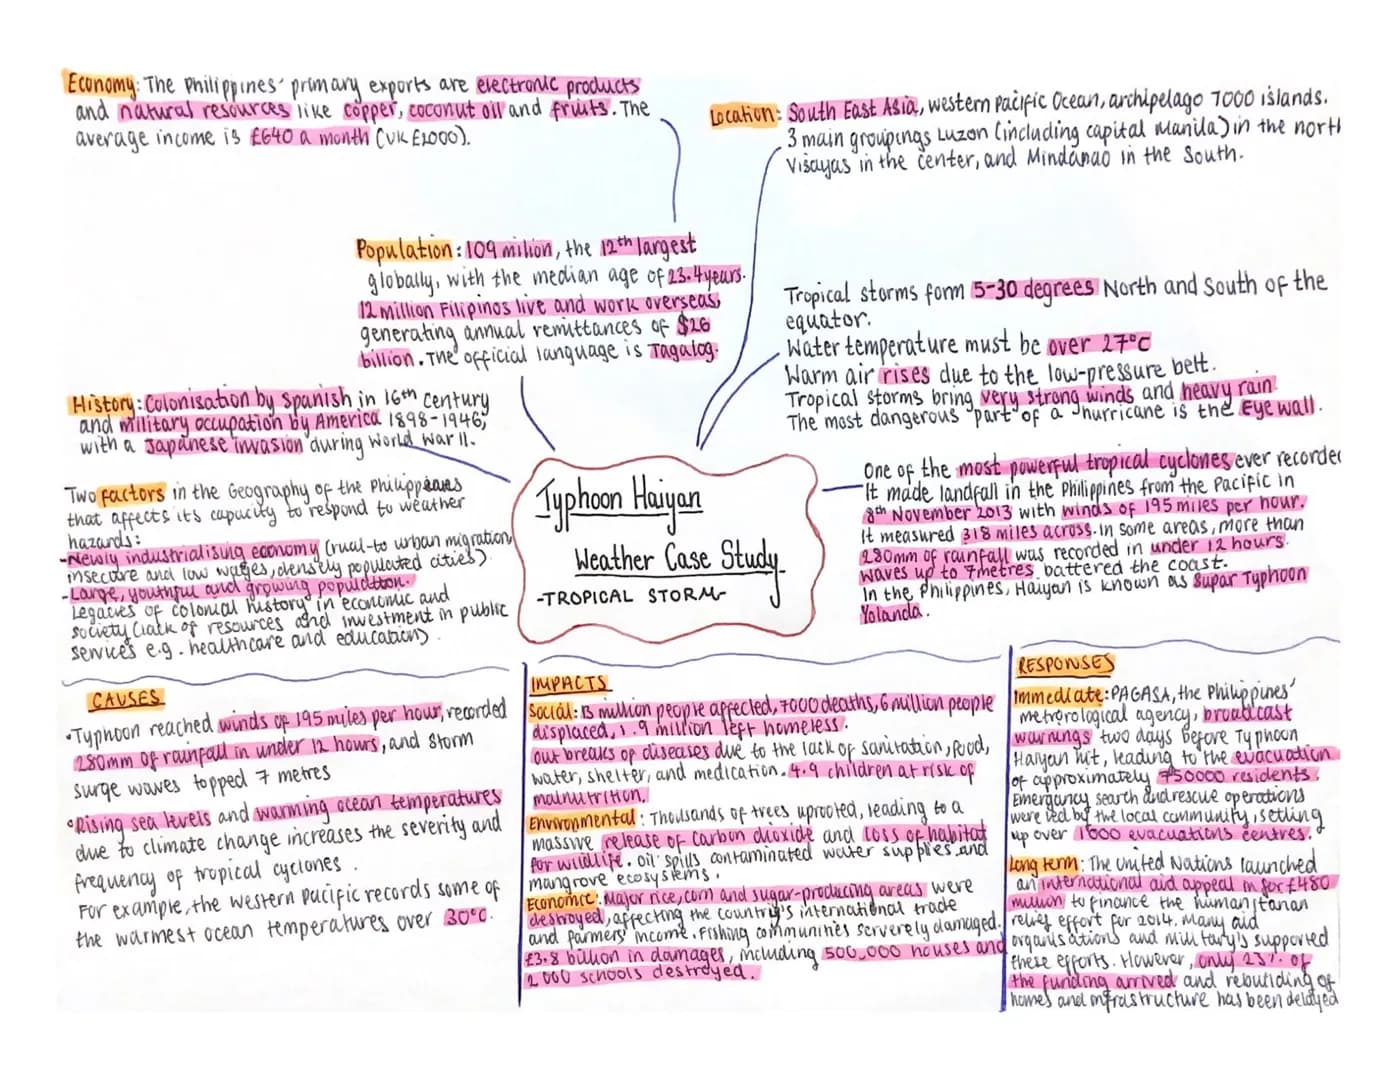 Economy: The Philippines' primary exports are electronic products
and natural resources like copper, coconut oil and fruits. The
average income is £640 a month (UK £2000).
Location: South East Asia, western Pacific Ocean, archipelago 7000 islands.
3 main groupings Luzon (including capital Manila) in the north
Visayas in the center, and Mindanao in the South.
Population: 109 milion, the 12th largest
globally, with the median age of 23.4 years.
12 million Filipinos live and work overseas,
generating annual remittances of $26
billion. The official language is Tagalog.
Tropical storms form 5-30 degrees North and South of the
equator.
Water temperature must be over 27°C
Warm air rises due to the low-pressure belt.
Tropical storms bring very strong winds and heavy rain.
The most dangerous part of a hurricane is the Eye wall.
History: Colonisation by Spanish in 16th century
and military occupation by America 1898-1946,
with a Japanese invasion during World War II.
Two factors in the Geography of the Philippines
that affects its capacity to respond to weather
hazards:
-Newly industrialising economy (rual-to urban migration,
insecure and low wages, densely populated cities)
-Large, youthful and growing population.
Legacies of colonial history in economic and
society (lack of resources and investment in public
services e.g. healthcare and education)
Typhoon Haiyan
Weather Case Study
-TROPICAL STORM-
One of the most powerful tropical cyclones ever recorded
It made landfall in the Philippines from the Pacific in
8th November 2013 with winds of 195 miles per hour.
It measured 318 miles across. In some areas, more than
280mm of rainfall was recorded in under 12 hours.
waves up to 7metres battered the coast.
In the Philippines, Haiyan is known as Supar Typhoon
Yolanda.
CAUSES
•Typhoon reached winds of 195 miles per hour, recorded
280mm of rainfall in under 12 hours, and storm
surge waves topped 7 metres
•Rising sea levels and warming ocean temperatures
due to climate change increases the severity and
frequency of tropical cyclones.
For example, the western Pacific records some of
the warmest ocean temperatures over 30°C.
IMPACTS
Social: 13 million people affected, 7000 deaths, 6 million people
displaced, 1.9 million left homeless.
out breaks of diseases due to the lack of sanitation, food,
water, shelter, and medication. 4.9 children at risk of
malnutrition.
Environmental: Thousands of trees uprooted, leading to a
massive release of carbon dioxide and loss of habitat
for wildlife. Oil spills contaminated water supplies and
mangrove ecosystems.
Economic: Major rice, corn and sugar-producing areas were
destroyed, affecting the country's international trade
and farmers' income. Fishing communities serverely damaged.
£3.8 billion in damages, including 500,000 houses and
2,000 schools destroyed.
RESPONSES
Immediate: PAGASA, the Philippines'
metrerological agency, broadcast
warnings two days before Typhoon
Haiyan hit, leading to the evacuation
of approximately 750000 residents.
Emergancy search and rescue operations
were led by the local community, setting
up over 1600 evacuations centres.
Long term: The United Nations launched
an international aid appeal in for £480
million to finance the humanitarian
relief effort for 2014. Many aid
organisations and military's supported
these efforts. However, only 23% of
the funding arrived and rebuilding of
homes and infrastructure has been delayed